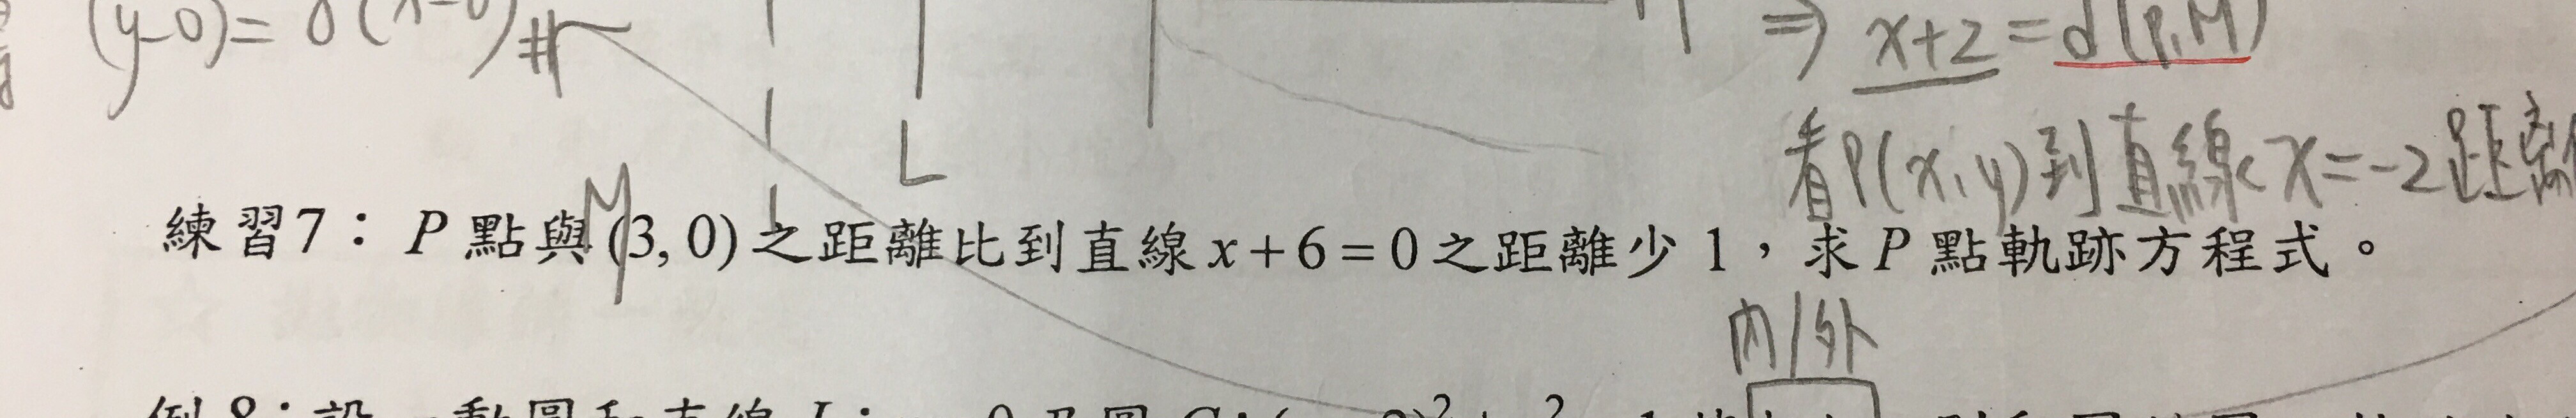 (y-0)= 8(x-0)#
⇒ x+2=d(P,M)
L
看P(x,y)到直線x=-2距離
M
練習7：P點與(3, 0)之距離比到直線x+6=0之距離少 1，求P點軌跡方程式。
內/外